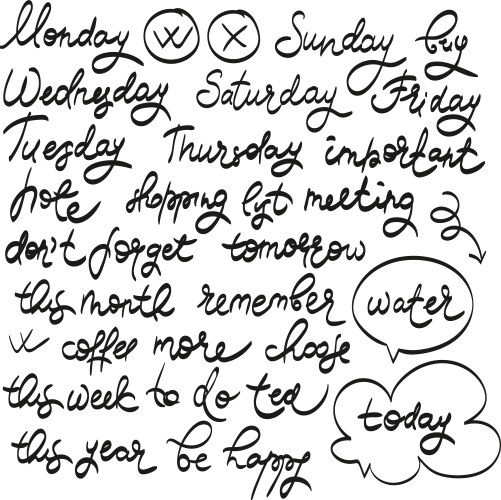 Monday Sunday buy
Wednesday Saturday Friday
Tuesday Thursday important
note shopping list meeting
don't forget tomorrow
this month remember water
coffee more choose
this week to do tea
today
this year be happy